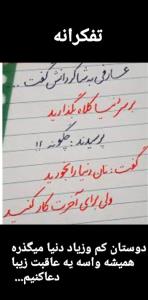 تفکرانه
عارفی به شاگردانش گفت...
بر سر دنیا کلاه بگذارید
پرسیدند: چگونه!!
گفت: نان دنیا را بخورید
ولی برای آخرت کار کنید
دوستان کم وزیاد دنیا میگذره
همیشه واسه یه عاقبت زیبا
دعاکنیم...